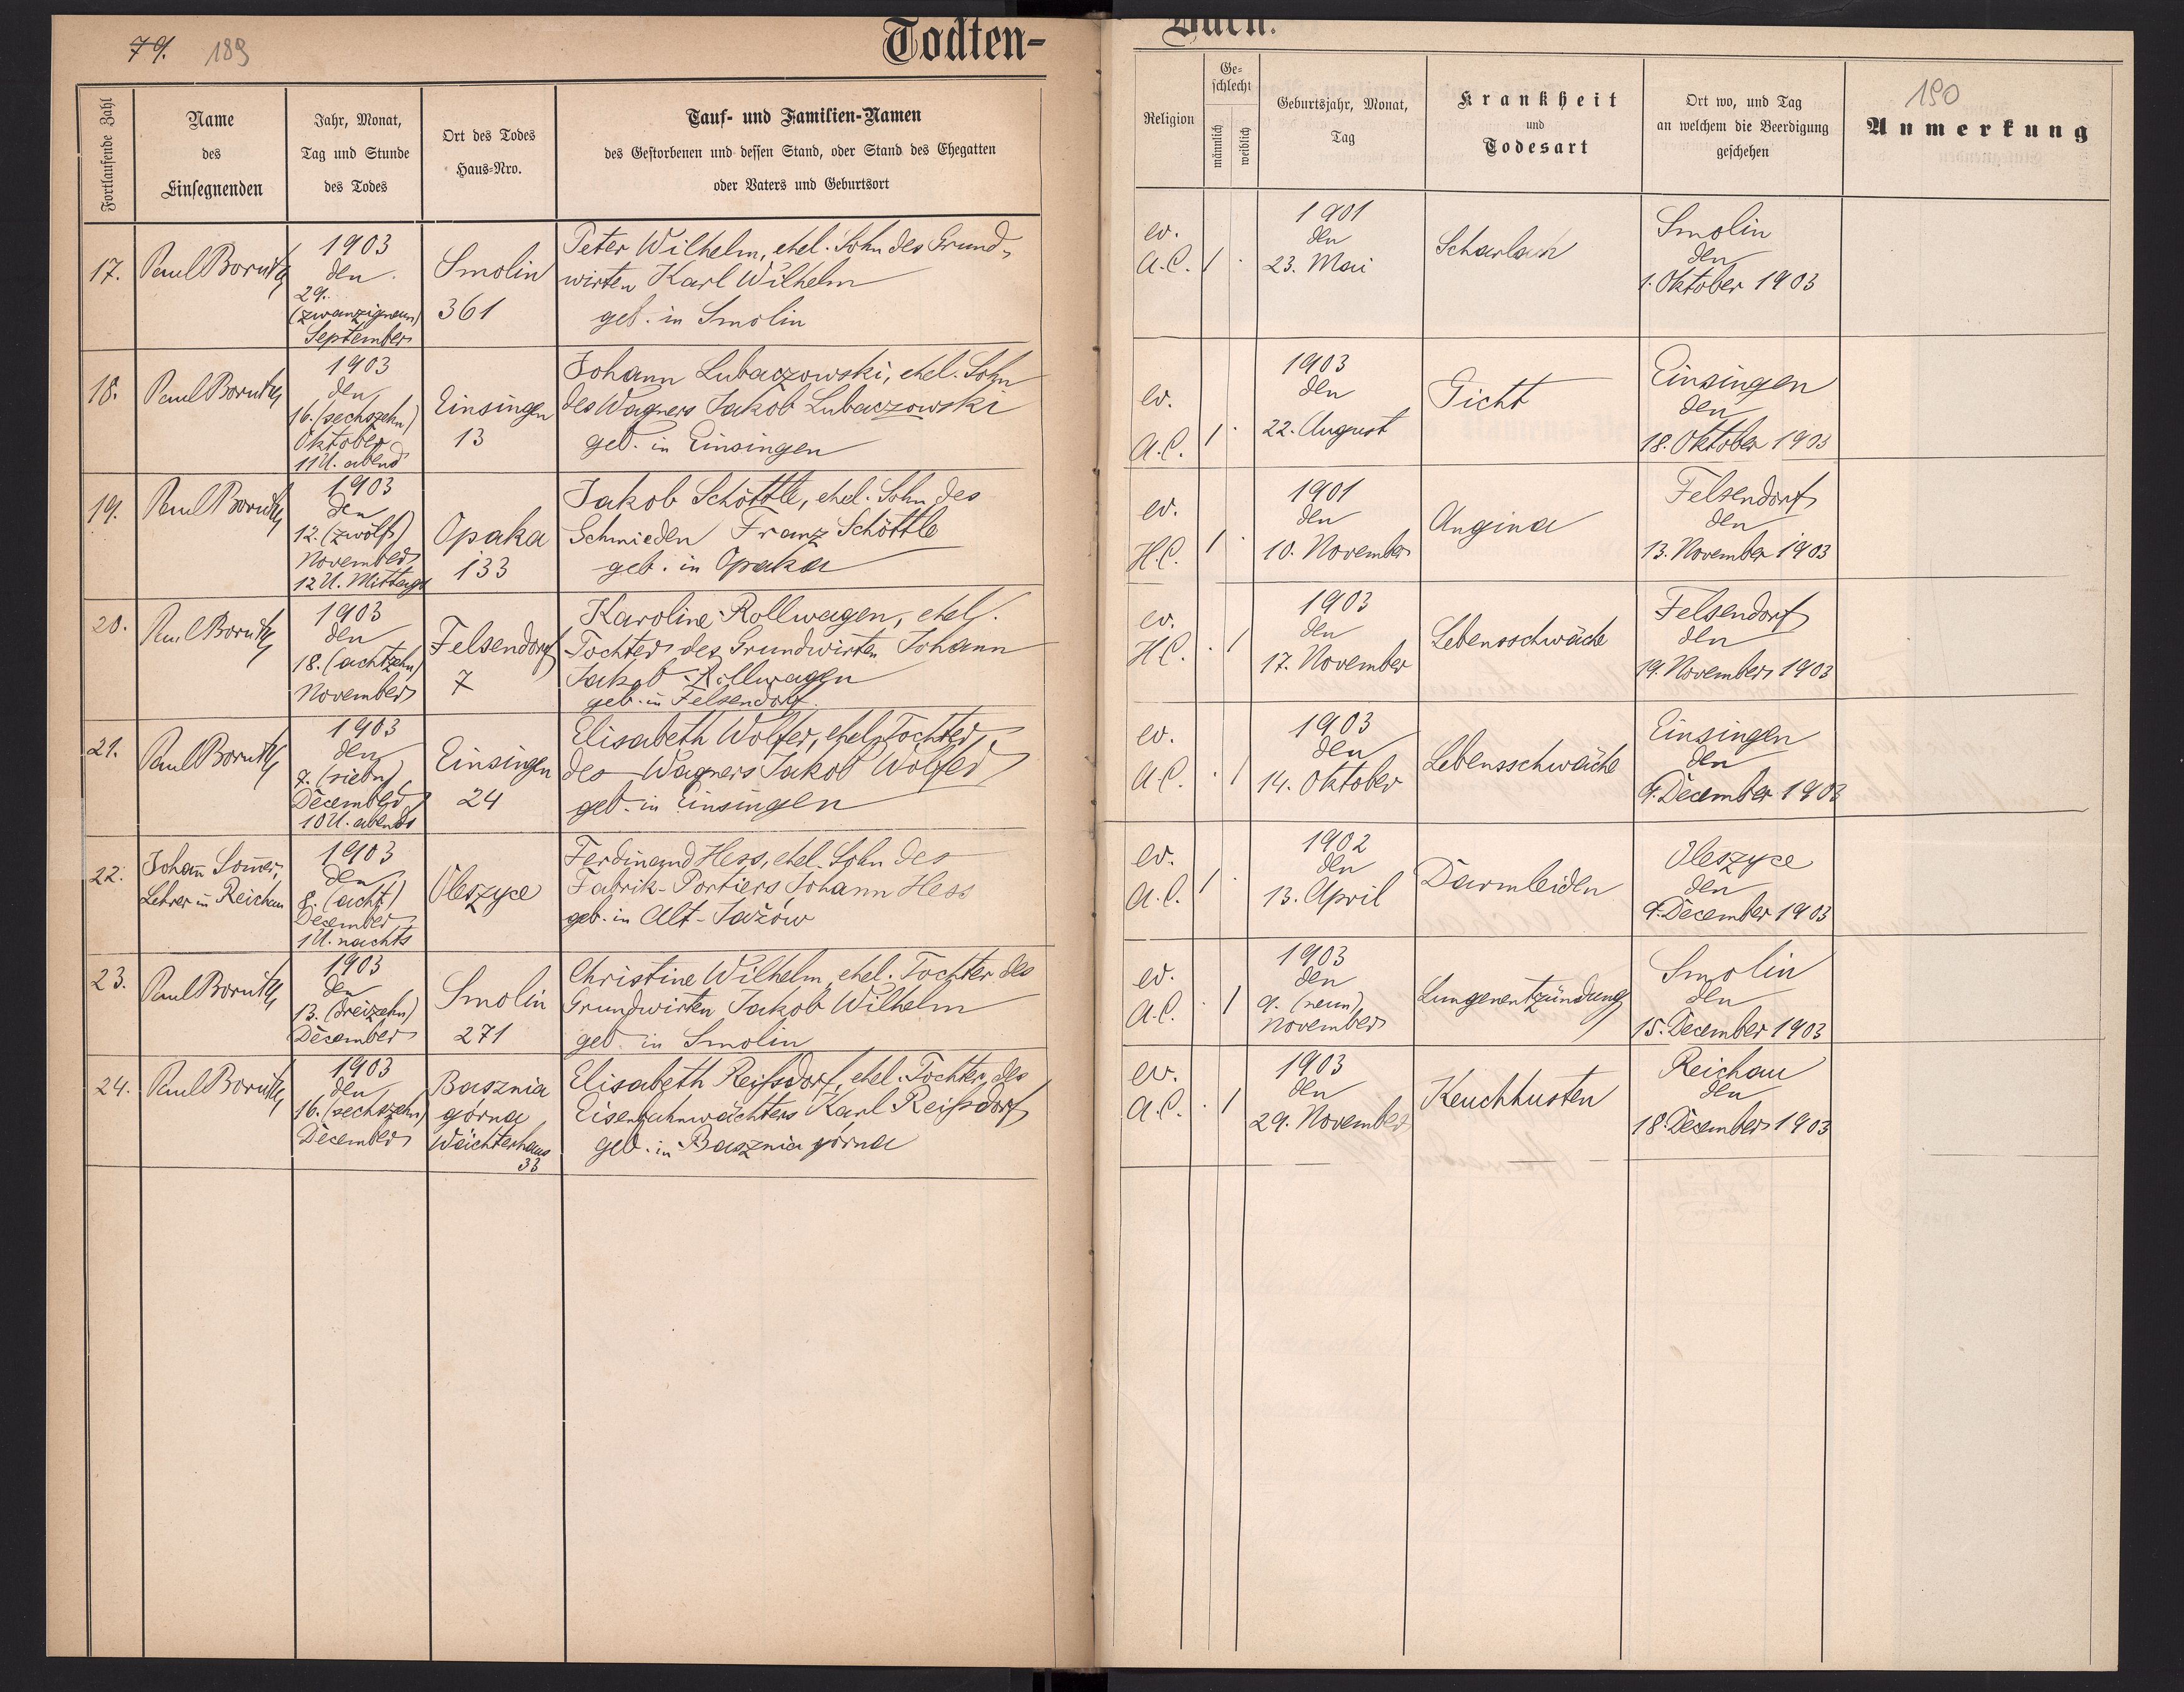 79. 189
Todten-
Fortlaufende Zahl
Name
des
Einsegnenden
Jahr, Monat,
Tag und Stunde
des Todes
Ort des Todes
Haus-Nro.
Tauf- und Familien-Namen
des Gestorbenen und dessen Stand, oder Stand des Ehegatten
oder Vaters und Geburtsort
17.
Paul Boruth
1903
den
29.
(zwanzigneun)
September
Smolin
361
Peter Wilhelm, ehel. Sohn des Grund-
wirten Karl Wilhelm
geb. in Smolin
18.
Paul Boruth
1903
den
16. (sechszehn)
Oktober
11 U. abend
Einsingen
13
Johann Lubaczowski, ehel. Sohn
des Wagners Jakob Lubaczowski
geb. in Einsingen
19.
Paul Boruth
1903
den
12. (zwölf)
November
12 U. Mittags
Opaka
133
Jakob Schöttle, ehel. Sohn des
Schmieden Franz Schöttle
geb. in Opaka
20.
Paul Boruth
1903
den
18. (achtzehn)
November
Felsendorf
7
Karoline Rollwagen, ehel.
Tochter des Grundwirten Johann
Jakob Rollwagen
geb. in Felsendorf.
21.
Paul Boruth
1903
den
7. (siebn)
December
10 U. abends
Einsingen
24
Elisabeth Wolfer, ehel. Tochter
des Wagners Jakob Wolfer
geb. in Einsingen
22.
Johan̄ Som̄er,
Lehrer in Reichau
1903
den
8. (acht)
December
1 U. nachts
Oleszyce
Ferdinand Hess, ehel. Sohn des
Fabrik-Portiers Johann Hess
geb. in Alt-Jażów
23.
Paul Boruth
1903
den
13. (dreizehn)
December
Smolin
271
Christine Wilhelm, ehel. Tochter des
Grundwirten Jakob Wilhelm
geb. in Smolin
24.
Paul Boruth
1903
den
16. (sechszehn)
December
Basznia
górna
Wächterhaus
33
Elisabeth Reißdorf, ehel. Tochter des
Eisenbahnwächters Karl Reißdorf
geb. in Basznia górna
Buch.
Religion
Ge-
schlecht
männlich
weiblich
Geburtsjahr, Monat,
Tag
Krankheit
und
Todesart
Ort wo, und Tag
an welchem die Beerdigung
geschehen
190
Anmerkung
ev.
A.C.
1 .
1901
den
23. Mai
Scharlach
Smolin
den
1. Oktober 1903
ev.
A.C.
1 .
1903
den
22. August
Gicht
Einsingen
den
18. Oktober 1903
ev.
H.C.
1 .
1901
den
10. November
Angina
Felsendorf
den
13. November 1903
ev.
H.C.
. 1
1903
den
17. November
Lebensschwäche
Felsendorf
den
19. November 1903
ev.
A.C.
. 1
1903
den
14. Oktober
Lebensschwäche
Einsingen
den
9. December 1903
ev.
A.C.
1 .
1902
den
13. April
Darmleiden
Oleszyce
den
9. December 1903
ev.
A.C.
. 1
1903
den
9. (neun)
November
Lungenentzündung
Smolin
den
15. December 1903
ev.
A.C.
. 1
1903
den
29. November
Keuchhusten
Reichau
den
18. December 1903